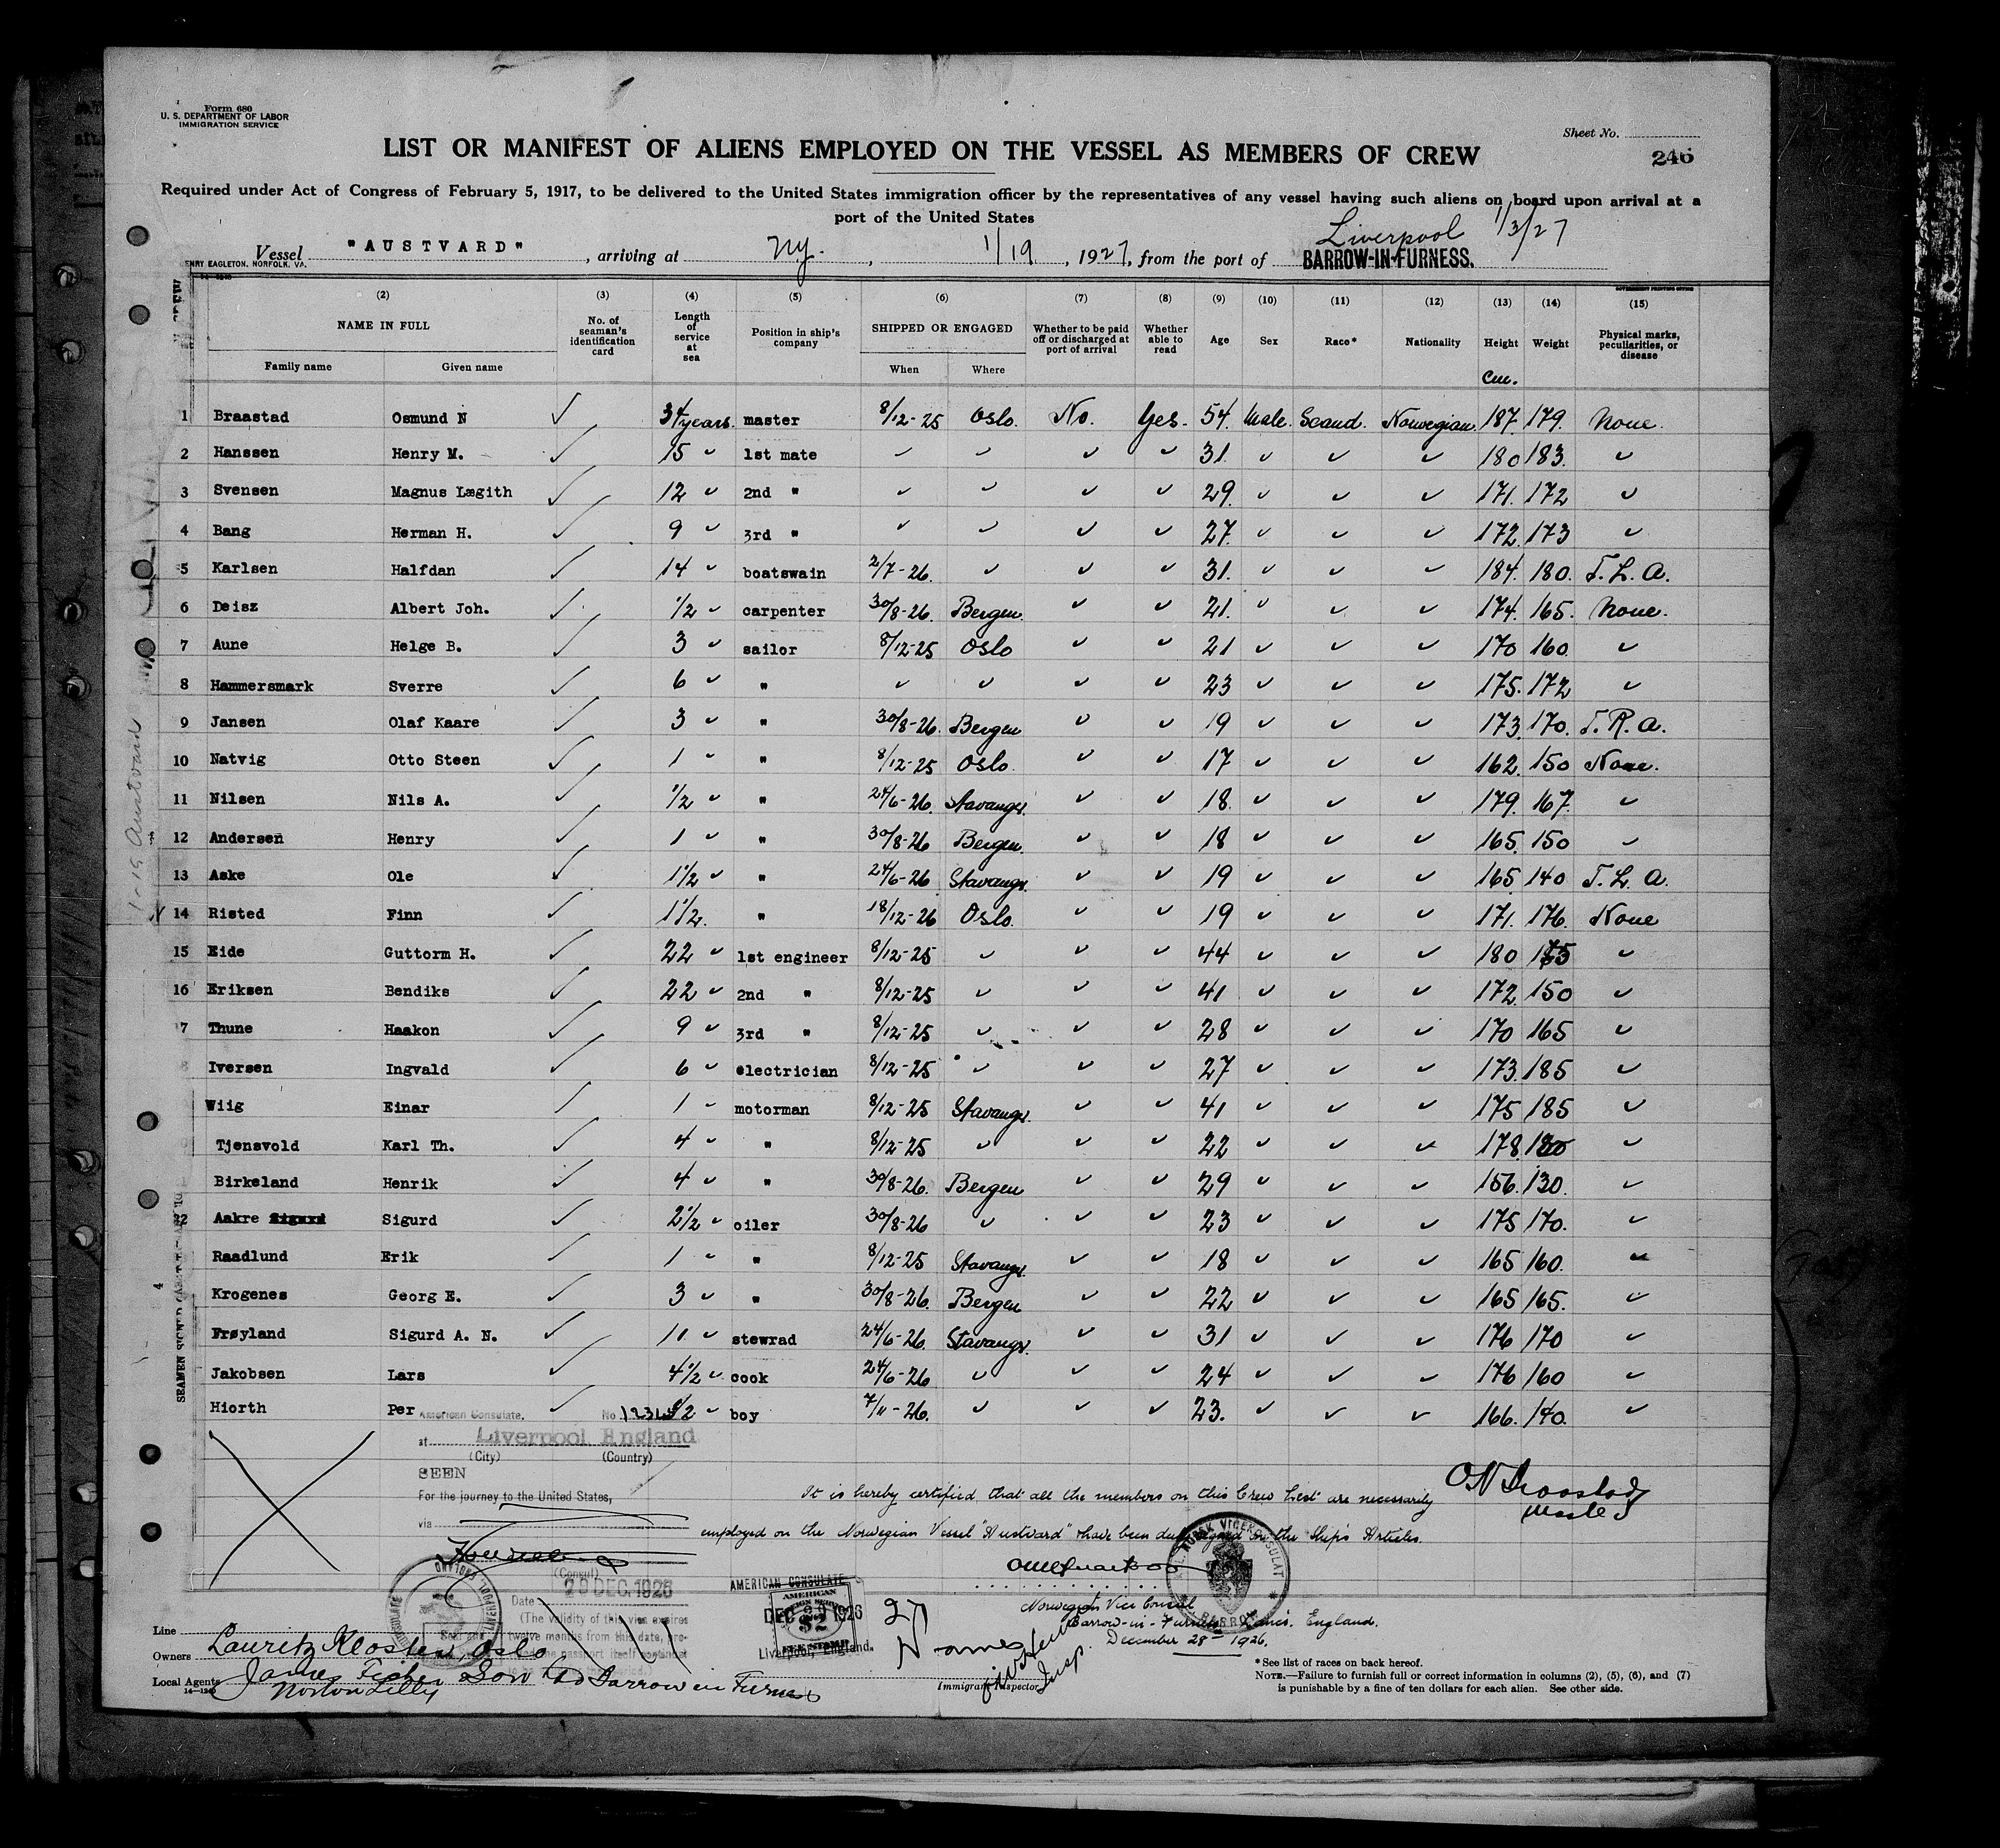 Form 680
U. S. DEPARTMENT OF LABOR
IMMIGRATION SERVICE
Sheet No.
246
LIST OR MANIFEST OF ALIENS EMPLOYED ON THE VESSEL AS MEMBERS OF CREW
Required under Act of Congress of February 5, 1917, to be delivered to the United States immigration officer by the representatives of any vessel having such aliens on board upon arrival at a
port of the United States
Liverpool 1/3/27
Vessel "AUSTVARD", arriving at Ny. , 1/19, 1927, from the port of BARROW-IN-FURNESS.
HENRY EAGLETON, NORFOLK, VA.
(2) (3) (4) (5) (6) (7) (8) (9) (10) (11) (12) (13) (14) (15)
NAME IN FULL No. of seaman's identification card Length of service at sea Position in ship's company SHIPPED OR ENGAGED Whether to be paid off or discharged at port of arrival Whether able to read Age Sex Race* Nationality Height Weight Physical marks, peculiarities, or disease
Family name Given name When Where Cm.
1 Braastad Osmund N ✓ 34 years. master 8/12-25 Oslo. No. Yes. 54. Male. Scand. Norwegian. 187. 179. None.
2 Hanssen Henry M. ✓ 15 ✓ 1st mate ✓ ✓ ✓ ✓ 31. ✓ ✓ ✓ 180 183. ✓
3 Svensen Magnus Lægith ✓ 12 ✓ 2nd " ✓ ✓ ✓ ✓ 29. ✓ ✓ ✓ 171. 172 ✓
4 Bang Herman H. ✓ 9 ✓ 3rd " ✓ ✓ ✓ ✓ 27. ✓ ✓ ✓ 172. 173 ✓
5 Karlsen Halfdan ✓ 14 ✓ boatswain 2/7-26. ✓ ✓ ✓ 31. ✓ ✓ ✓ 184. 180. T. L. A.
6 Deisz Albert Joh. ✓ 1/2 ✓ carpenter 30/8-26. Bergen. ✓ ✓ 21. ✓ ✓ ✓ 174. 165. None.
7 Aune Helge B. ✓ 3 ✓ sailor 8/12-25 Oslo ✓ ✓ 21 ✓ ✓ ✓ 170 160. ✓
8 Hammersmark Sverre ✓ 6 ✓ " ✓ ✓ ✓ ✓ 23 ✓ ✓ ✓ 175. 172 ✓
9 Jansen Olaf Kaare ✓ 3 ✓ " 30/8-26. Bergen ✓ ✓ 19 ✓ ✓ ✓ 173. 170. T. R. A.
10 Natvig Otto Steen ✓ 1 ✓ " 8/12-25 Oslo. ✓ ✓ 17 ✓ ✓ ✓ 162. 150 None.
11 Nilsen Nils A. ✓ 1/2 ✓ " 24/6-26. Stavangr. ✓ ✓ 18. ✓ ✓ ✓ 179. 167. ✓
12 Andersen Henry ✓ 1 ✓ " 30/8-26 Bergen. ✓ ✓ 18 ✓ ✓ ✓ 165. 150 ✓
13 Aske Ole ✓ 1 1/2 ✓ " 24/6-26 Stavangr. ✓ ✓ 19 ✓ ✓ ✓ 165 140 T. L. A.
14 Risted Finn ✓ 1 1/2. " 18/12-26 Oslo. ✓ ✓ 19 ✓ ✓ ✓ 171. 176. None
15 Eide Guttorm H. ✓ 22 ✓ 1st engineer 8/12-25 ✓ ✓ ✓ 44 ✓ ✓ ✓ 180 ✓
16 Eriksen Bendiks ✓ 22 ✓ 2nd " 8/12-25 ✓ ✓ ✓ 41 ✓ ✓ ✓ 172. 150 ✓
7 Thune Haakon ✓ 9 ✓ 3rd " 8/12-25 ✓ ✓ ✓ 28 ✓ ✓ ✓ 170 165 ✓
8 Iversen Ingvald ✓ 6 ✓ electrician 8/12-25 ✓ ✓ ✓ 27 ✓ ✓ ✓ 173. 185 ✓
Wiig Einar ✓ 1 ✓ motorman 8/12-25 Stavangr. ✓ ✓ 41 ✓ ✓ ✓ 175 185 ✓
Tjensvold Karl Th. ✓ 4 ✓ " 8/12-25 ✓ ✓ ✓ 22 ✓ ✓ ✓ 178. ✓
Birkeland Henrik ✓ 4 ✓ " 30/8-26. Bergen ✓ ✓ 29 ✓ ✓ ✓ 156. 130. ✓
2 Aakre Sigurd Sigurd ✓ 2 1/2 ✓ oiler 30/8-26 ✓ ✓ ✓ 23 ✓ ✓ ✓ 175 170. ✓
Raadlund Erik ✓ 1 ✓ " 8/12-25 Stavangr. ✓ ✓ 18 ✓ ✓ ✓ 165 160. ✓
Krogenes Georg E. ✓ 3 ✓ " 30/8-26. Bergen ✓ ✓ 22 ✓ ✓ ✓ 165 165. ✓
Frøyland Sigurd A. N. ✓ 11 ✓ stewrad 24/6-26. Stavangr. ✓ ✓ 31 ✓ ✓ ✓ 176 170 ✓
Jakobsen Lars ✓ 4 1/2 ✓ cook 24/6-26 ✓ ✓ ✓ 24 ✓ ✓ ✓ 176 160 ✓
Hiorth Per ✓ 1/2 ✓ boy 7/11-26. ✓ ✓ ✓ 23. ✓ ✓ ✓ 166. 140. ✓
1-19 Austvard
American Consulate,
at Liverpool England
(City) (Country)
SEEN
For the journey to the United States,
via
(Consul)
29 DEC. 1926
Date
(The validity of this visa expires
twelve months from this date,
O N Braastad
master
It is hereby certified that all the members on this Crew List are necessarily
employed on the Norwegian Vessel "Austvard" & have been duly signed on the Ship's Articles.
NORSK VICEKONSULAT
BARROW
Norwegian Vice Consul
Barrow-in-Furness Lancs. England.
December 28th 1926.
AMERICAN CONSULATE
DEC 29 1926
AMERICAN
$2
FEE STAMP
Liverpool, England.
27
Names
Insp.
Immigrant Inspector.
Line
Owners Lauritz Kloster, Oslo
Local Agents James Fisher & Son Ltd Barrow in Furness
Norton Lilly
14—1240
* See list of races on back hereof.
NOTE.—Failure to furnish full or correct information in columns (2), (5), (6), and (7)
is punishable by a fine of ten dollars for each alien. See other side.